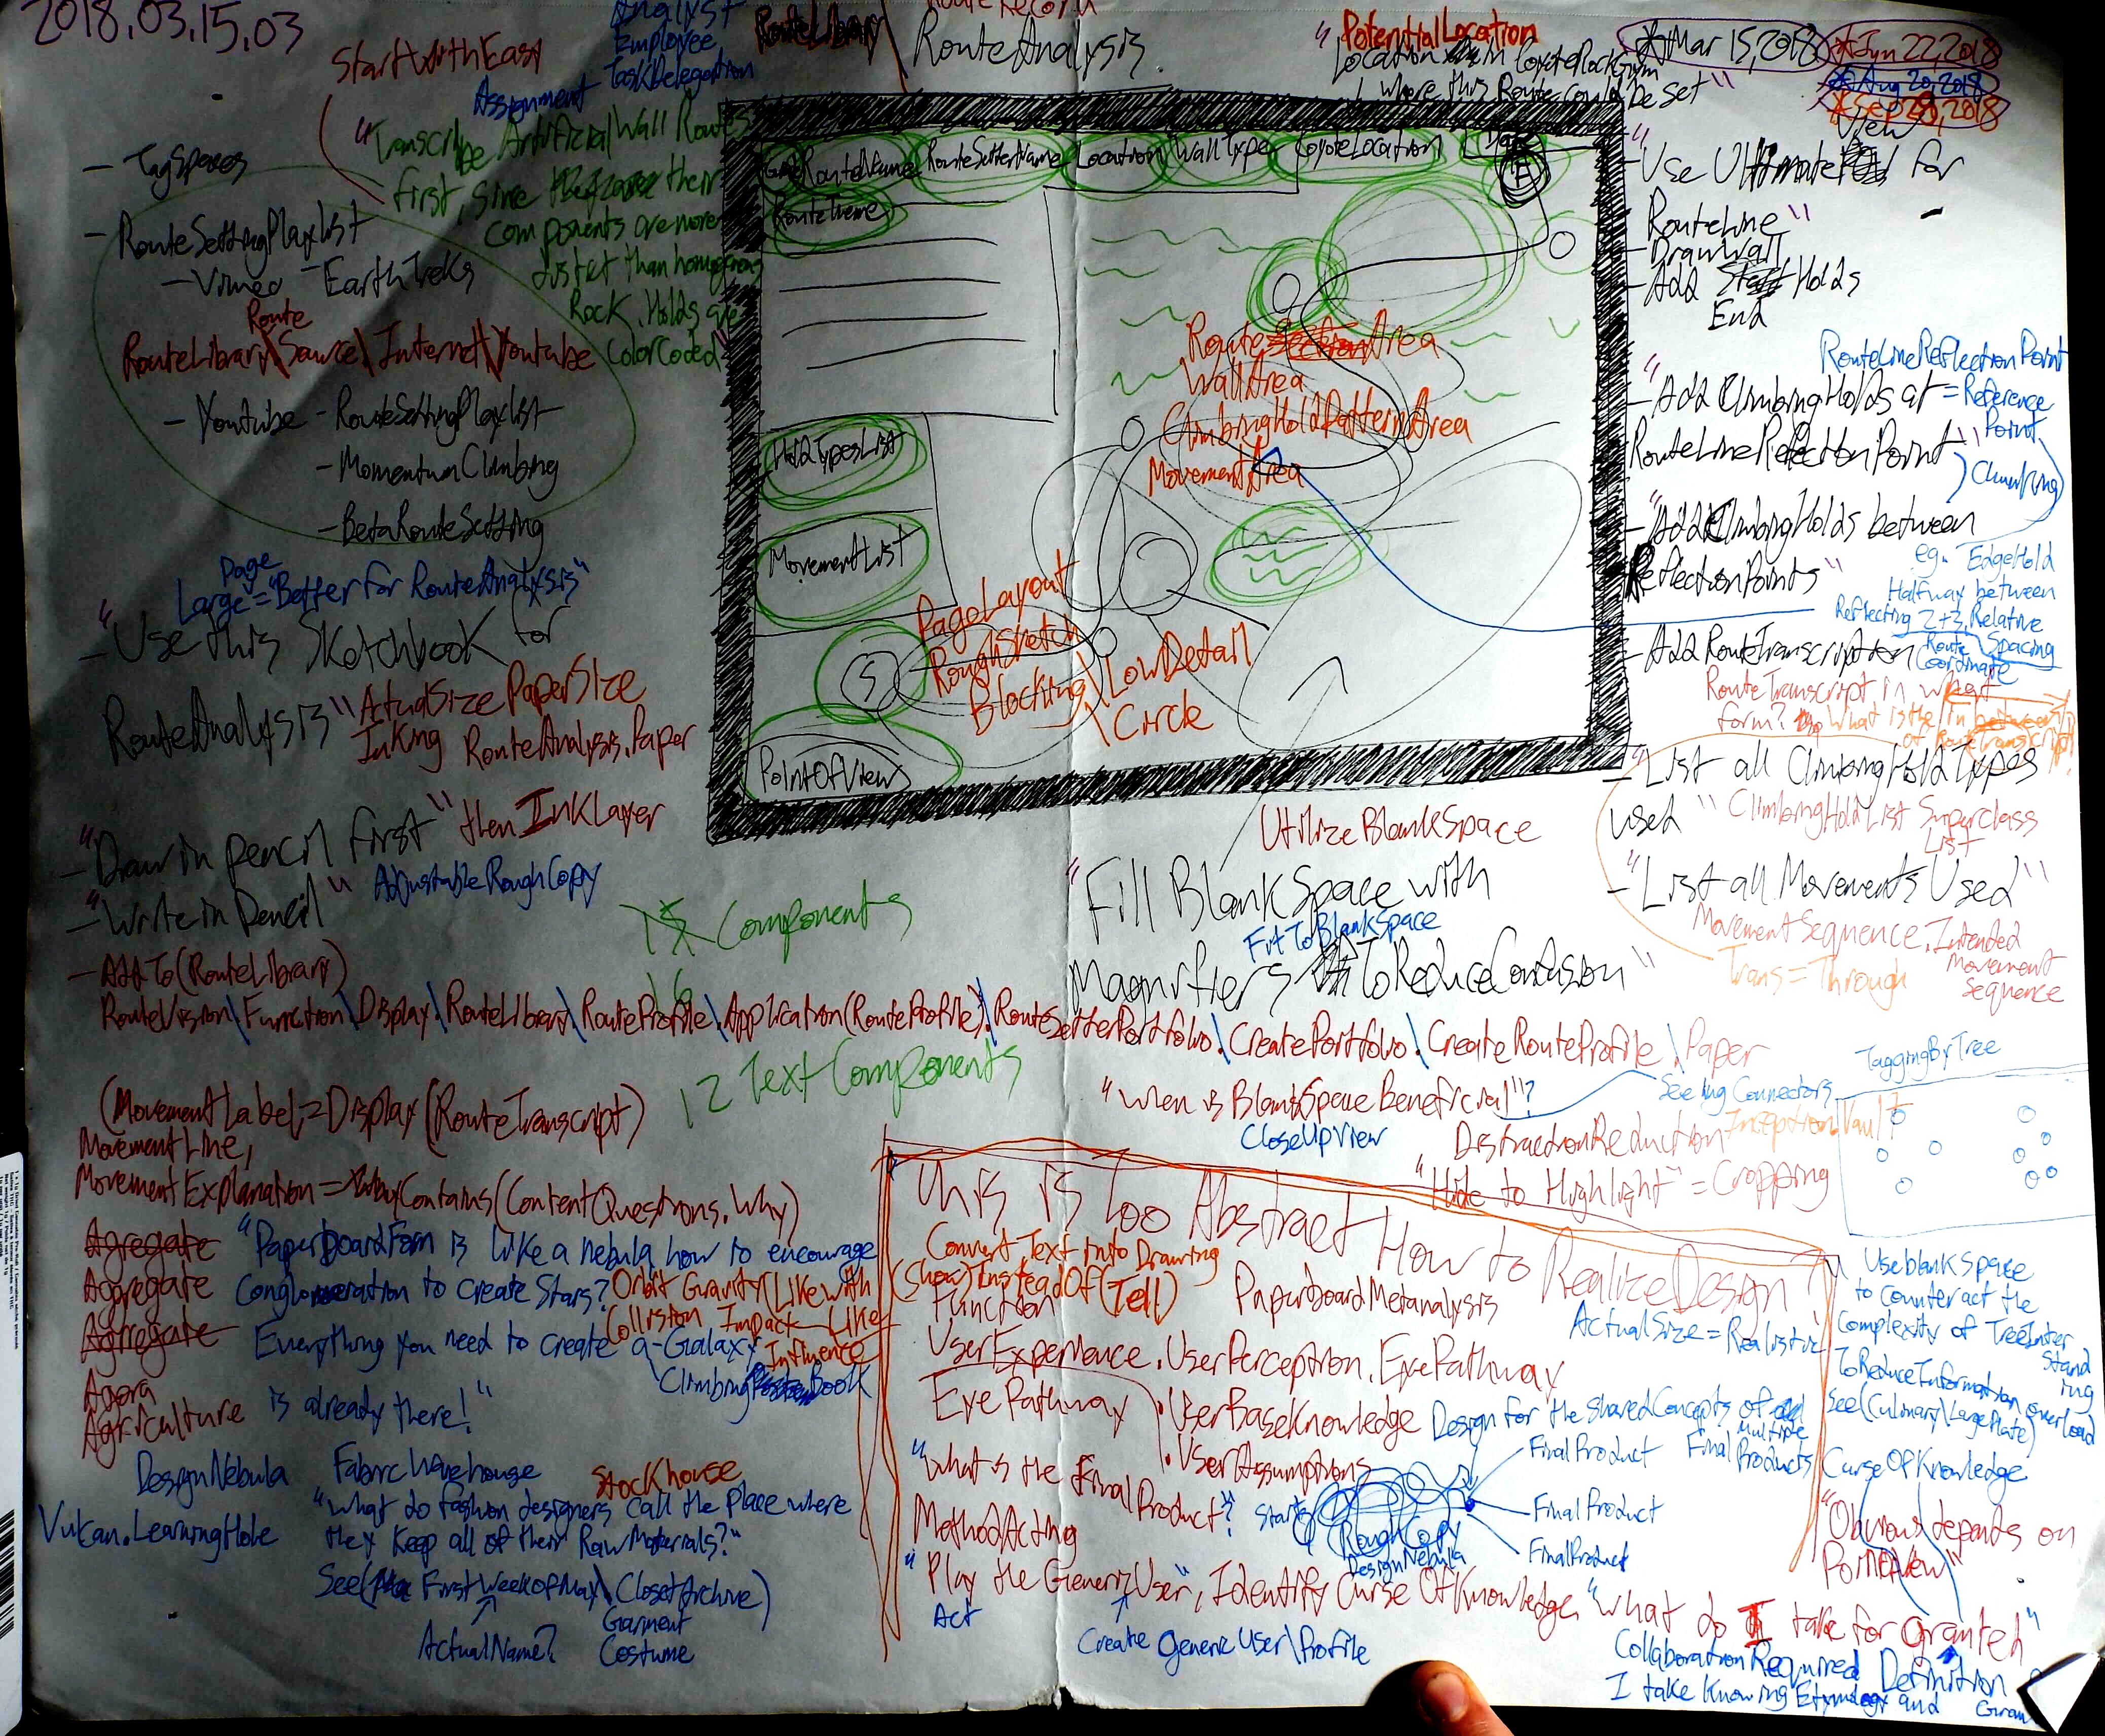 2018.03.15.03
StartWithEasy
Analyst
Employee
TaskDelegation
Assignment
RouteLibrary\
RouteRecord
RouteAnalysis
"PotentialLocation
Location in CoyoteRockGym
where this Route could be set"
*Mar 15, 2018
*Jun 22, 2018
*Aug 20, 2018
"Transcribe Artificial Wall Routes
first, since their
components are more
distict than homogenous
Rock. Holds are
ColorCoded"
- TagSpaces
- RouteSettingPlaylist
- Vimeo - EarthTreks
Route
RouteLibrary\Source\Internet\Youtube
- Youtube - RouteSettingPlaylist
- MomentumClimbing
- BetaRouteSetting
Page
Large = "Better for RouteAnalysis"
"
- Use this Sketchbook for
RouteAnalysis"
ActualSize PaperSize
Inking RouteAnalysis.Paper
"
- Draw in pencil first" then InkLayer
- "Write in Pencil" AdjustableRoughCopy
- AddTo(RouteLibrary)
RouteVision\Function\Display.\RouteLibrary\RouteProfile\.Application(RouteProfile).\RouteSetterPortfolio.\CreatePortfolio.\CreateRouteProfile.\Paper
15 Components
16
12 TextComponents
RouteName
RouteSetterName
Location
WallType
CoyoteLocation
Date
RouteTheme
HoldTypesList
MovementList
PointOfView
S
F
RouteArea
WallArea
ClimbingHoldPatternArea
MovementArea
PageLayout
RoughSketch
Blocking\LowDetail
\Circle
"
View
- Use Ultimate for
RouteLine"
- DrawWall
- Add Holds
End
RouteLineReflectionPoint
"
- Add ClimbingHolds at = Reference
Point
RouteLineReflectionPoint"
"
- Add ClimbingHolds between
ReflectionPoints"
eg. EdgeHold
Halfway between
Reflecting 2+3, Relative
Route Spacing
Coordinate
- Add RouteTranscription
RouteTranscript in what
form? What is the in between
of RouteTranscript?
- "List all ClimbingHoldTypes
used" ClimbingHoldList Superclass
List
- "List all Movements Used"
MovementSequence.Intended
Movement
Sequence
Trans = Through
UtilizeBlankSpace
"Fill BlankSpace with
FitToBlankSpace
Magnifiers ToReduceConfusion"
"When is BlankSpace Beneficial"?
CloseUpView
Seeing Connectors
DistractionReduction
Inception.Vault
"Hide to Highlight" = Cropping
TaggingByTree
(MovementLabel = Display(RouteTranscript)
MovementLine,
MovementExplanation = Contains(ContentQuestions.Why)
Aggregate
Aggregate
Aggregate
Agora
Agriculture
"PaperboardForm is like a nebula how to encourage
Conglomeration to create Stars?
Orbit Gravity(LikeWith
Collision Impact - Like
Influence
Everything you need to create a Galaxy
ClimbingBook
is already there!"
DesignNebula
Vulcan.LearningHole
FabricWarehouse
StockHouse
"What do fashion designers call the place where
they Keep all of their RawMaterials?"
See( FirstWeekOfMay\ClosetArchive)
ActualName?
Garment
Costume
This is Too Abstract How to RealizeDesign?
Convert Text into Drawing
(Show)InsteadOf(Tell)
Function
PaperboardMetanalysis
ActualSize = Realistic
UserExperience.UserPerception.EyePathway
EyePathway
.UserBaseKnowledge
.UserAssumptions
Design for the SharedConcepts of
Multiple
FinalProducts
"What is the FinalProduct?"
Start
RoughCopy
DesignNebula
FinalProduct
FinalProduct
FinalProduct
MethodActing
"Play the GenericUser", Identify Curse Of Knowledge "What do I take for Granted"
Act
Create GenericUser\Profile
Use blank Space
to counteract the
Complexity of TreeInter
Stand
ing
ToReduceInformation overload
See(Culinary\LargePlate)
CurseOfKnowledge
"Obvious depends on
PointOfView"
CollaborationRequired Definition
I take Knowing Etymology and